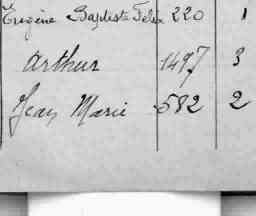 Eugène Baptiste Félix 220 1
Arthur 1497 3
Jean Marie 582 2